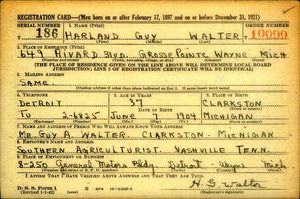 REGISTRATION CARD—(Men born on or after February 17, 1897 and on or before December 31, 1921)
SERIAL NUMBER 1. NAME (Print) ORDER NUMBER
U 186 HARLAND GUY WALTER 10099
2. PLACE OF RESIDENCE (Print)
649 RIVARD BLVD. GROSSE POINTE WAYNE MICH
[THE PLACE OF RESIDENCE GIVEN ON THE LINE ABOVE WILL DETERMINE LOCAL BOARD
JURISDICTION; LINE 2 OF REGISTRATION CERTIFICATE WILL BE IDENTICAL]
3. MAILING ADDRESS
SAME
4. TELEPHONE 5. AGE IN YEARS 6. PLACE OF BIRTH
DETROIT 37 CLARKSTON
DATE OF BIRTH
TU 2-6825 JUNE 1904 MICHIGAN
7. NAME AND ADDRESS OF PERSON WHO WILL ALWAYS KNOW YOUR ADDRESS
MR. GUY A. WALTER. CLARKSTON - MICHIGAN
8. EMPLOYER'S NAME AND ADDRESS
SOUTHERN AGRICULTURIST. NASHVILLE TENN.
9. PLACE OF EMPLOYMENT OR BUSINESS
3-258 General Motors Bldg Detroit - Wayne Mich
I AFFIRM THAT I HAVE VERIFIED ABOVE ANSWERS AND THAT THEY ARE TRUE.
D. S. S. Form 1
H. G. Walter